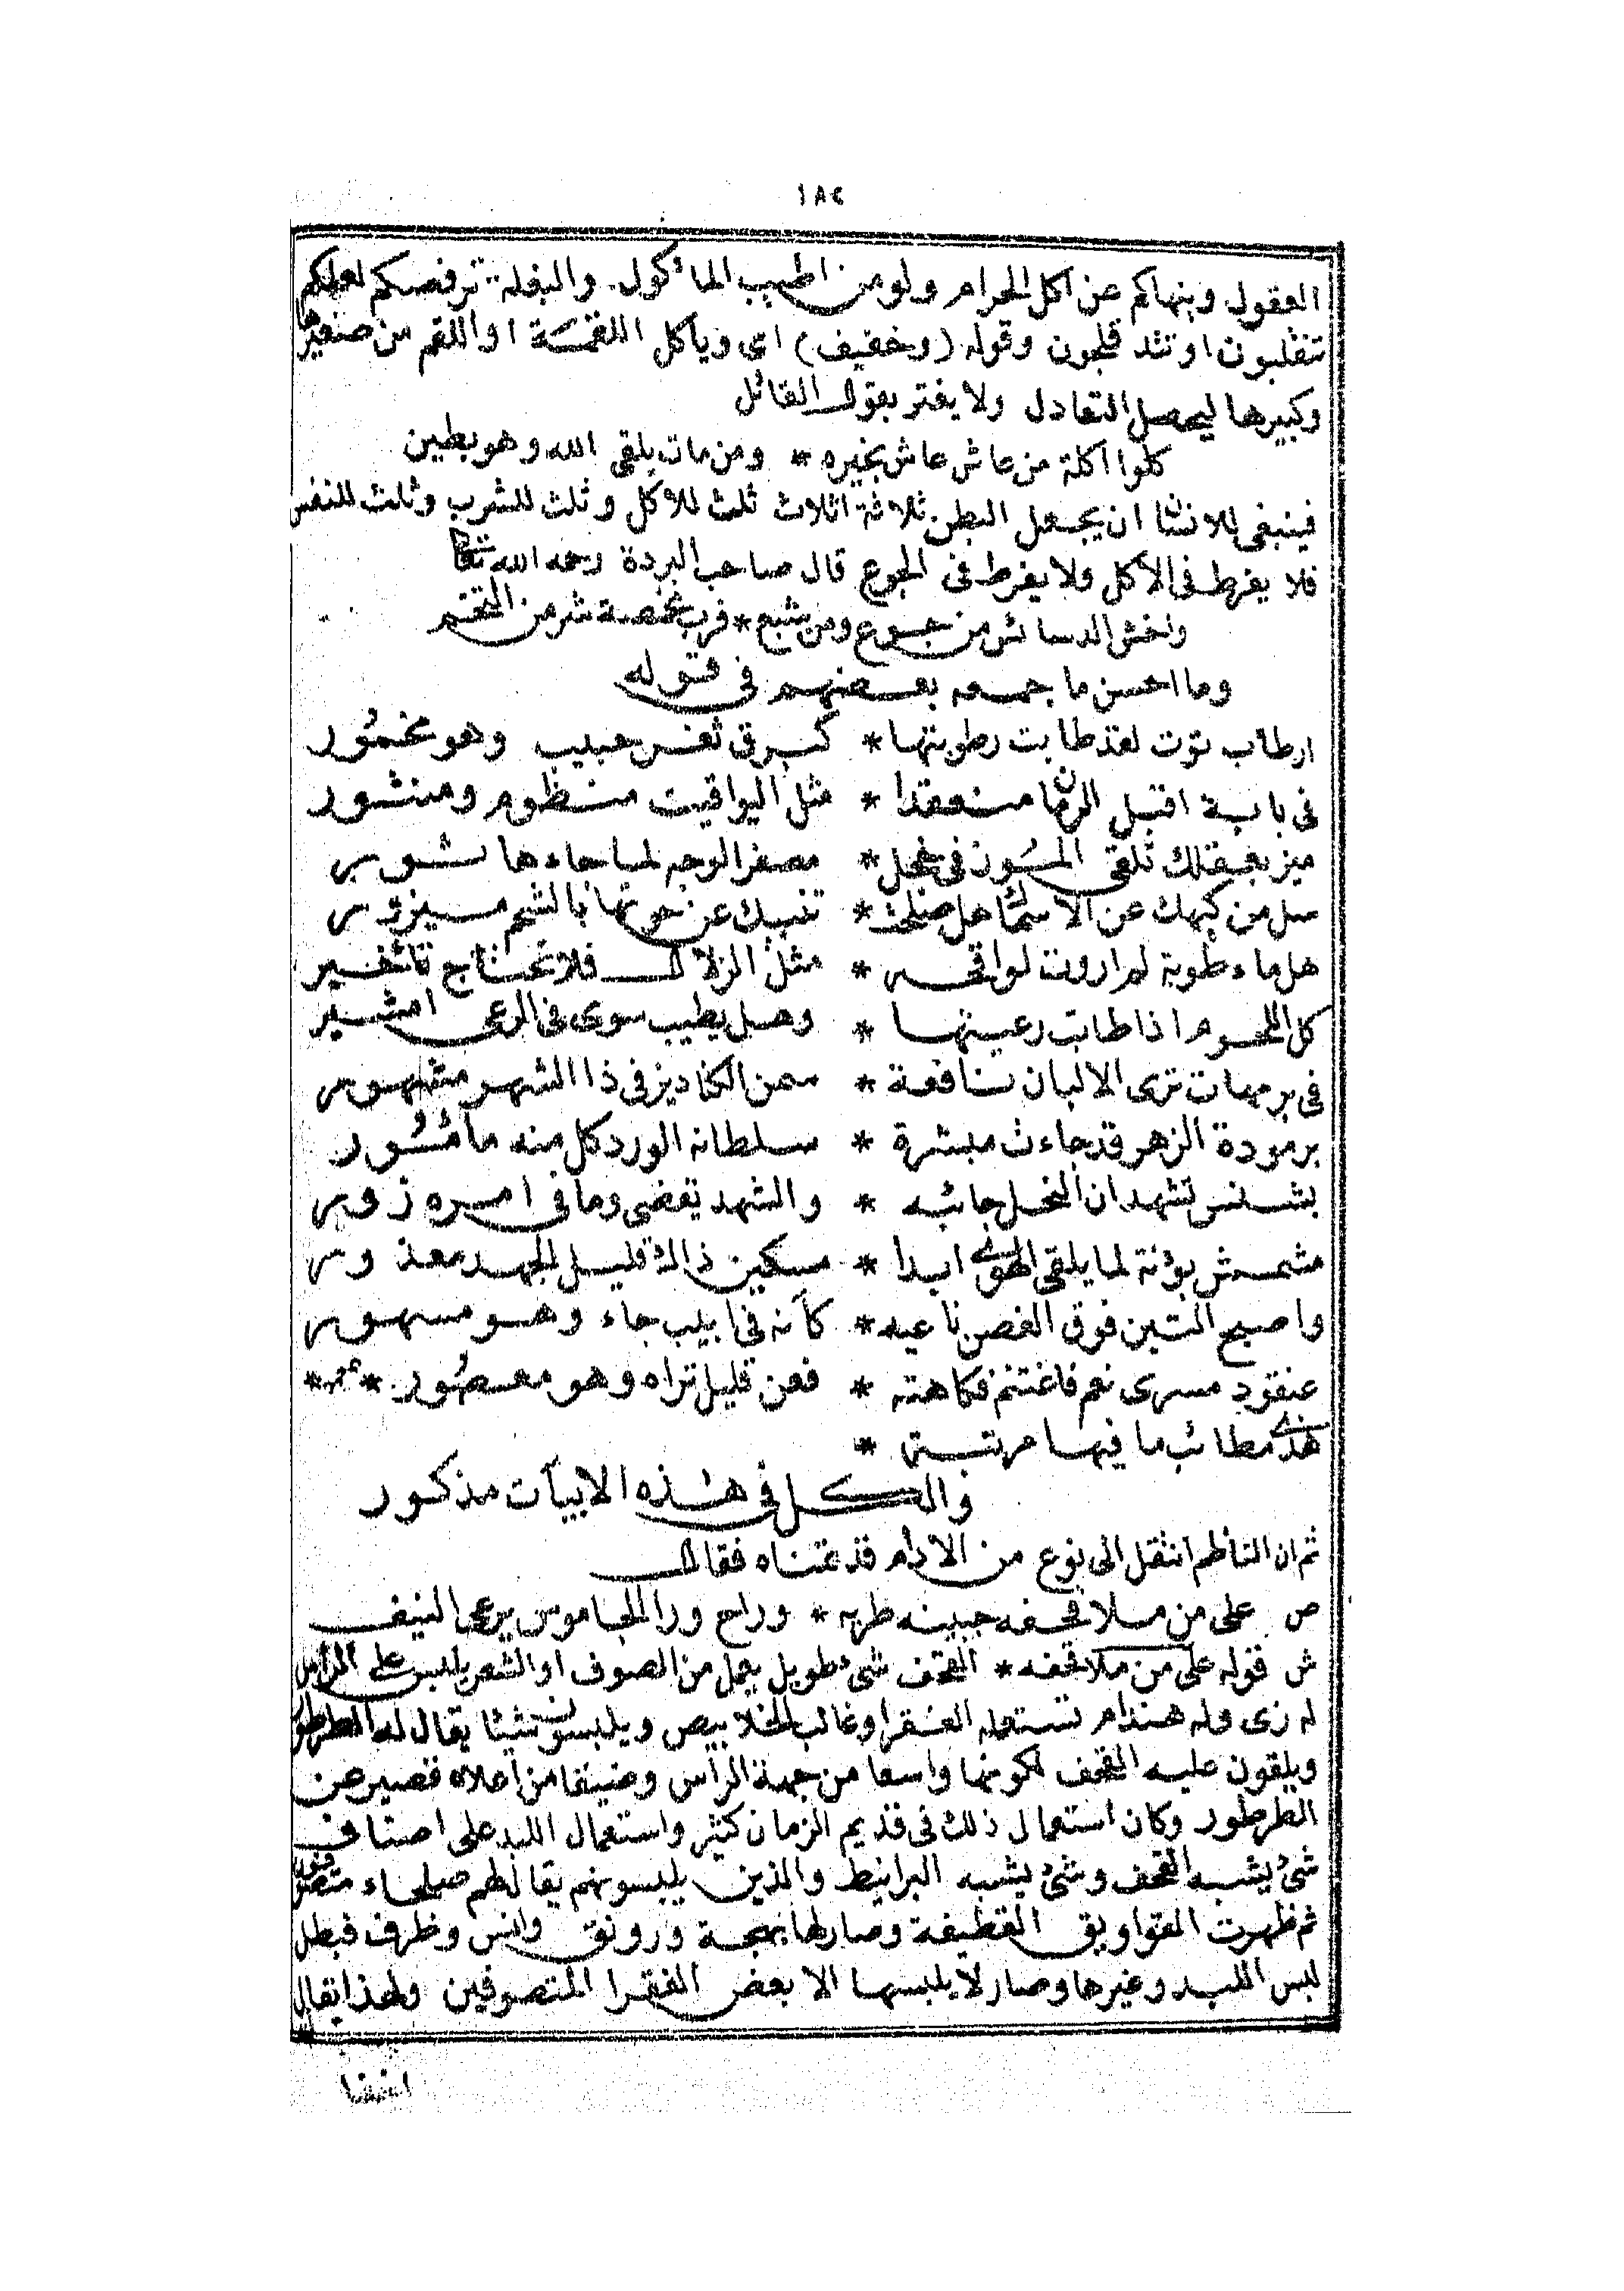 ١٨٤
العقول وينهاكم عن اكل الحرام ولو من اطيب المأكول والبغلة ترفصكم لعلكم
تنقلبون او تندقلجون وقوله (وخفيف) اى ويأكل اللقمة او اللقم من صغيرها
وكبيرها ليحصل التعادل ولا يغتر بقول القائل
كلوا اكلة من عاش عاش بخيره * ومن مات يلقى الله وهو بطين
فينبغى للانسان ان يجعل البطن ثلاثة اثلاث ثلث للأكل وثلث للشرب وثلث للنفس
فلا يفرط فى الاكل ولا يفرط فى الجوع قال صاحب البردة رحمه الله تعالى
واخش الدسائس من جوع ومن شبع * فرب مخمصة شر من التخم
وما احسن ما جمعه بعضهم فى قوله
ارطاب توت لقد طابت رطوبتها * كبرق ثغر حبيب وهو مخمور
فى بابة اقبل الرمان منعقدا * مثل اليواقيت منظوم ومنثور
ميز بعقلك تلقى الموز فى خجل * مصفر الوجه لما جاء هاتور
سل من كيهك عن الاسماك هل صلحت * تنبيك عن حوتها بالشحم ميزور
هل ماء طوبة لم ارون لواقحه * مثل الزلال فلا تحتاج تأثير
كل اللحوم اذا طابت رعيتها * وهل يطيب سوى فى الرعى امشير
فى برمهات ترى الالبان نافعة * سمن الكاديز فى ذا الشهر مشهور
برمودة الزهر قد جاءت مبشرة * سلطانه الورد كل منه مأثور
بشنس تشهد ان النحل جائبه * والشهد يقضى وما فى امره زور
مشمش بؤنة لما يلقى الهوى ابدا * مسكين ذاك قليل الجهد معذور
واصبح التين فوق الغصن ناعيه * كأنه فى ابيب جاء وهو مسهور
عنقود مسرى نعم فاغتنم فكاهته * فعن قليل تراه وهو معصور *
هذى مطائب ما فيها مرتبتى *
والكل فى هذه الابيات مذكور
ثم ان الناظم انتقل الى نوع من الادام قد تمناه فقال
ص على من ملا قحفه جبينه طريه * وراح ورا الجاموس يرعى النيف
ش قوله على من ملا قحفه * القحف شئ طويل يعمل من الصوف او الشعر يلبس على الرأس
له زى وله هندام تستعمله الفقرا وغالب الخلابيص ويلبسون شيئا يقال له الطرطور
ويلقون عليه القحف لكونها واسعا من جهة الرأس وضيقا من اعلاه فصير عن
الطرطور وكان استعمال ذلك فى قديم الزمان كثير واستعمال اللبد على اصناف
شئ يشبه القحف وشئ يشبه البرانيط والذين يلبسونهم يقال لهم صلحاء متصوفون
ثم ظهرت القواويق القطيفة وصار لها بهجة ورونق وانس وظرف فبطل
لبس اللبد وغيرها وصار لا يلبسها الا بعض الفقرا المتصوفين ولهذا يقال